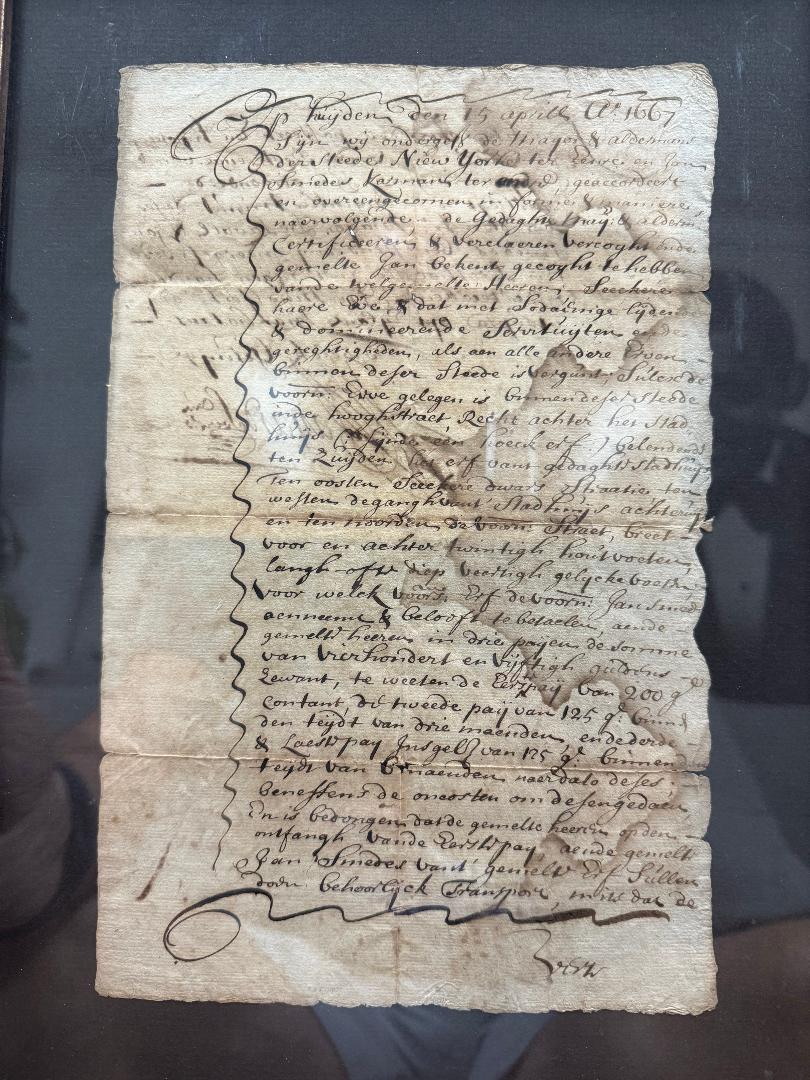 Op huyden den 15 aprill Aº 1667
Sijn wij ondergesr: de Mayor & aldermans
der Steede Niew Yorke ter Eenre en Jan
Smedes Karman, ter geaccordeert
en overeengecomen in forme & maniere
naervolgende de Gedaghte May: & alderm
Certificeeren & verclaeren vercoght ende
gemelte Jan bekent gecoght te hebben
vande welgemelte Heeren, Seeckere
haere Erve & dat met Sodaenige lijdende
& domineerende Servituyten ende
gereghtigheden, als aen alle andere Erven
binnen deser Steede is vergunt,
voorn: Erve gelegen is binnen deser Steede
inde hooghstraet, Recht achter het Stad
huijs (: Sijnde een hoeck erf :) belendende
ten Zuijden het erf vant gedaghte Stadhuijs
Ten oosten Seeckere dwars Straatie, ten
westen de gangh vant Stadhuijs achter
en ten noorden de voorn: Straet, breet
voor en achter twintigh houtvoeten,
langh ofte diep veertigh gelycke voeten
Voor welck voors: Erf de voorn: Jan Smed
aenneemt & belooft te betaelen aende
gemelte heeren in drie payen de somme
van Vierhondert en Vijftigh guldens
Zewant, te weeten de Eerste paij van 200 gl
Contant, de tweede paij van 125 gl: binn
den tijdt van drie maenden, ende derde
& Laeste pay Insgel van 125 gl: binnen
tijdt van 6 maenden naer dato deses
beneffens de oncosten om desen gedaen
En is bedongen dat de gemelte heeren op den
ontfangh vande Eerste pay, aende gemelt
Jan Smedes vant gemelt Erf Sullen
doen behoorlijck Transport, mits dat de